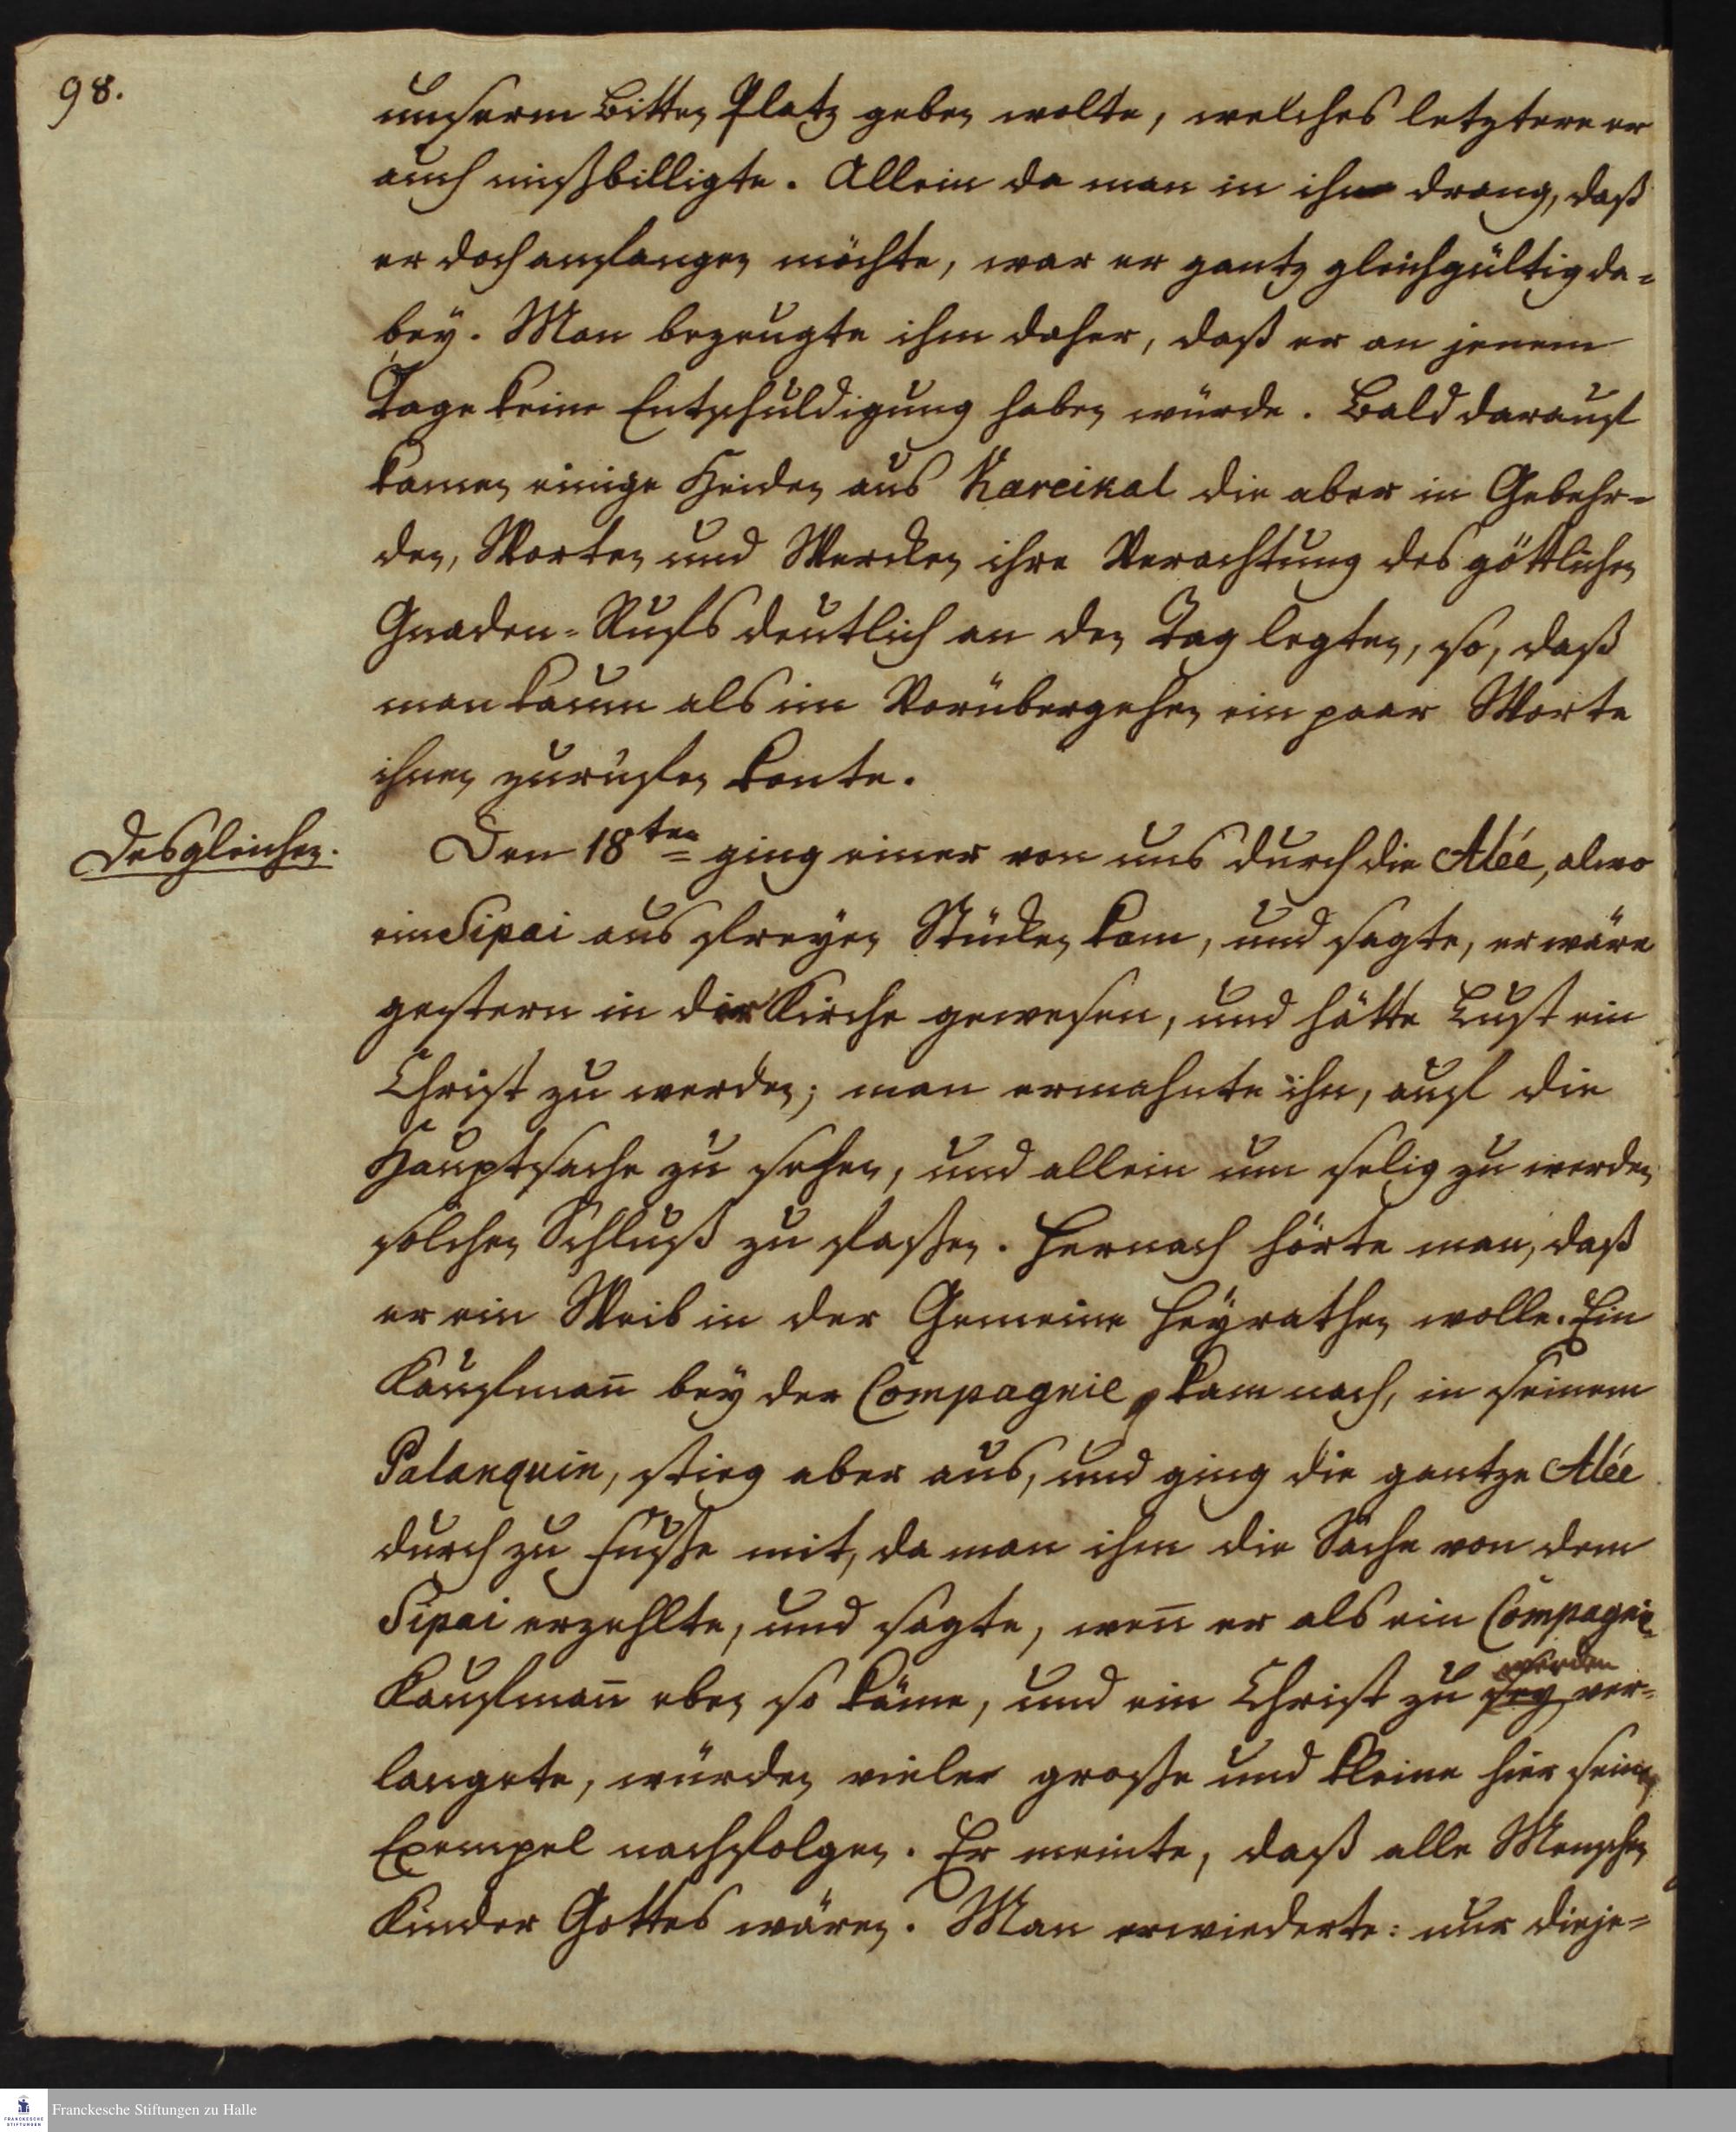 98.
unserm Bitten Platz geben wolte, welches letztere er
auch mißbilligte. Allein da man in ihn drang, daß
er doch anfangen möchte, war er gantz gleichgültig da=
bey. Man bezeugte ihm daher, daß er an jenem
Tage keine Entschuldigung haben würde. Bald darauf
kamen einige Heiden aus Kareikal die aber in Gebehr=
den, Worten und Wercken ihre Verachtung des göttlichen
Gnaden=Rufs deutlich an den Tag legten, so, daß
man kaum als im Vorübergehen ein paar Worte
ihnen zurufen konte.
Desgleichen.
Den 18ten ging einer von uns durch die Alée, alwo
ein Sipai aus freyen Stücken kam, und sagte, er wäre
gestern in der Kirche gewesen, und hätte Lust ein
Christ zu werden; man ermahnte ihn, auf die
Hauptsache zu sehen, und allein um selig zu werden
solchen Schluß zu fassen. Hernach hörte man, daß
er ein Weib in der Gemeine heyrathen wolle. Ein
Kaufman̅ bey der Compagnie kam nach, in seinem
Palanquin, stieg aber aus, und ging die gantze Alée
durch zu Fusse mit, da man ihm die Sache von dem
Sipai erzehlte, und sagte, wen̅ er als ein Compagnie=
werden
Kaufman̅ eben so käme, und ein Christ zu sey ver=
langete, würden viele grosse und kleine hier seinem
Exempel nachfolgen. Er meinte, daß alle Menschen
Kinder Gottes wären. Man erwiederte: nur dieje=
Franckesche Stiftungen zu Halle